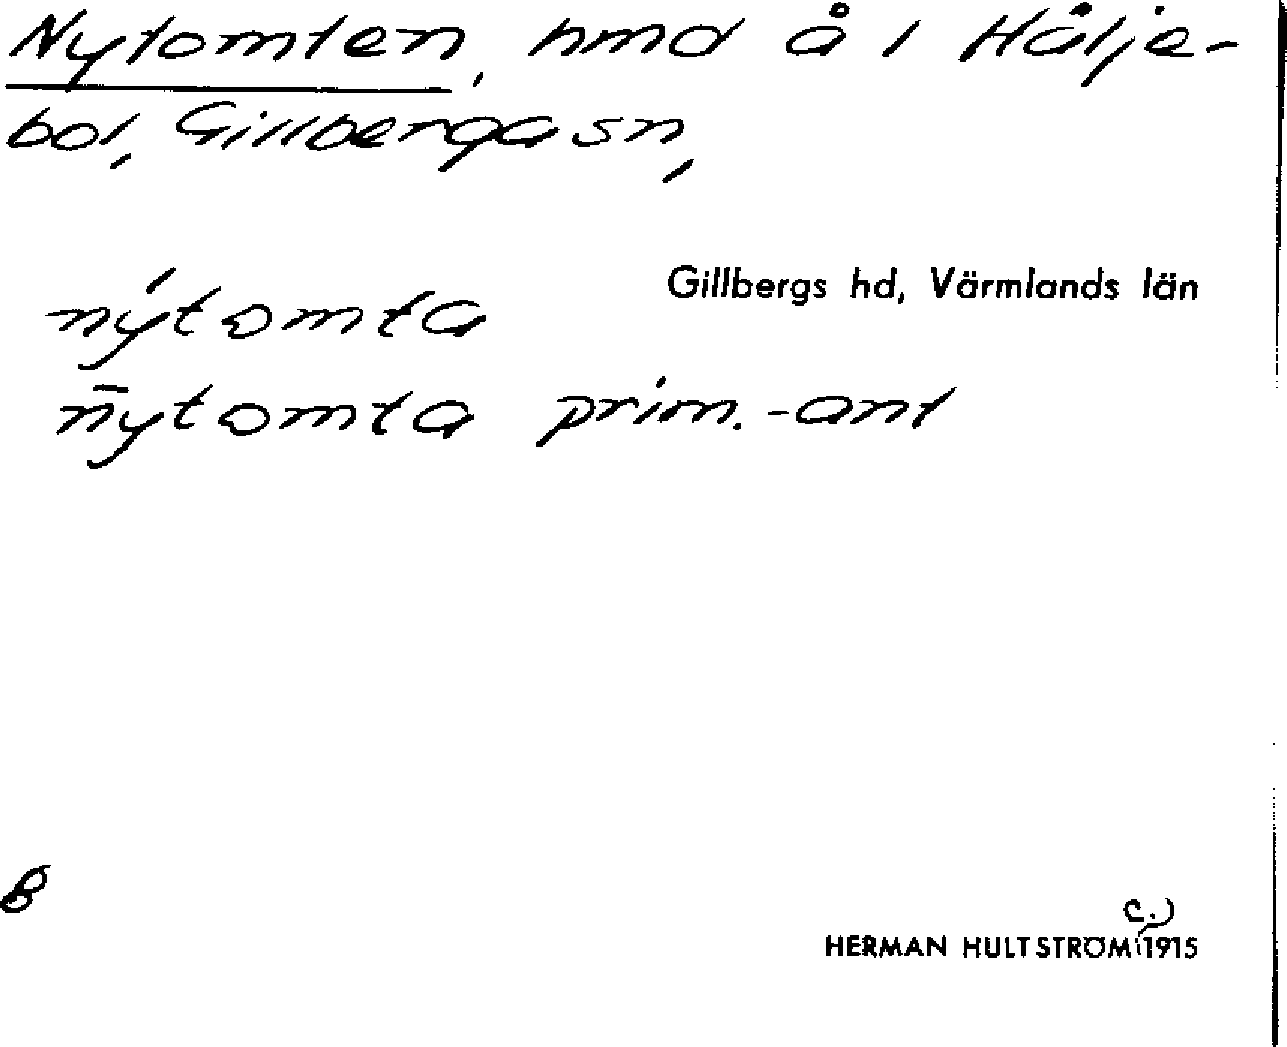 Nytomten, hmd å i Hålje-
bol, Gillbergasn,
Gillbergs hd, Värmlands län
nýtomta
n̄ytomta prim.-ant
B
c.)
HERMAN HULTSTRÖM 1915